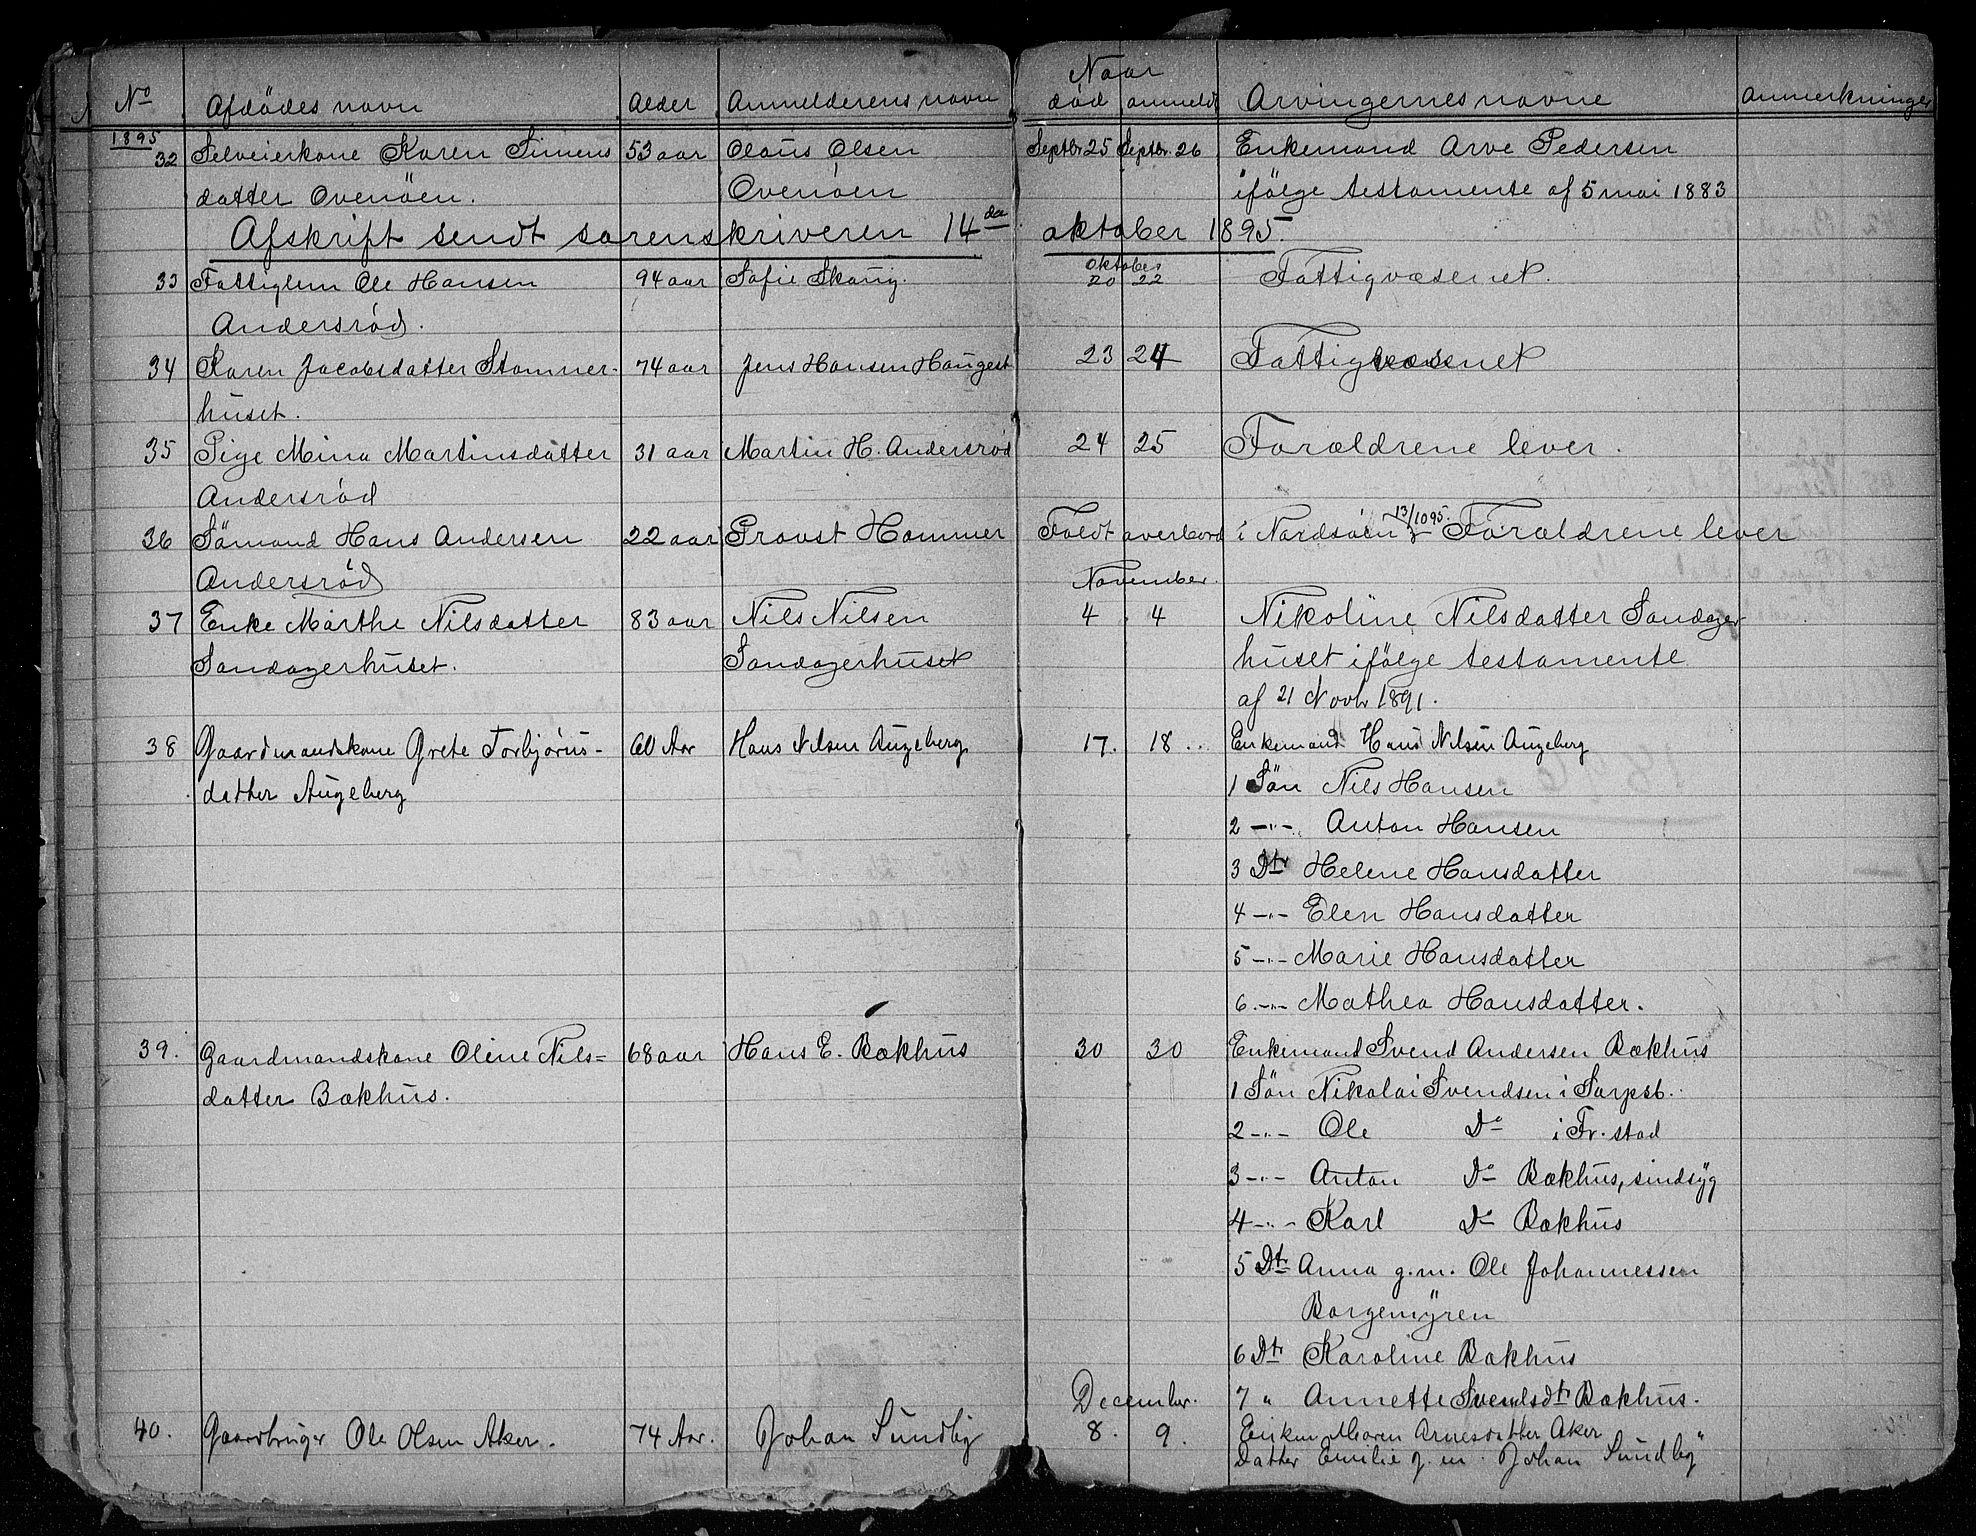 No Afdödes navn Alder Anmelderens navn Naar död anmeldt Arvingernes navne Anmerkninger
1895
32 Selveierkone Karen Simens 53 aar Olaus Olsen Septbr. 25 Septbr. 26 Enkemand Arve Pedersen
datter Ovenöen. Ovenöen ifölge testamente af 5 mai 1883
Afskrift sendt sorenskriveren 14de oktober 1895.
oktober
33 Fattiglem Ole Hansen 94 aar Sofie Skaug. 20 22 Fattigvæsenet.
Andersrød.
34 Karen Jacobsdatter Stomner- 74 aar Jens Hansen Haugest 23 24 Fattigvæsenet
huset.
35 Pige Mina Martinsdatter 31 aar Martin H. Andersrød 24 25 Forældrene lever.
Andersrød
36 Sömand Hans Andersen 22 aar Provst Hammer Faldt overbord i Nordsöen 13/10 95. Forældrene lever
Andersrød November.
37 Enke Marthe Nilsdatter 83 aar Nils Nilsen 4 4 Nikoline Nilsdatter Sandager
Sandagerhuset. Sandagerhuset huset ifölge testamente
af 21 Novbr 1891.
38 Gaardmandskone Grete Torbjørns- 60 Aar Hans Nilsen Augeberg 17. 18.. Enkemand Hans Nilsen Augeberg
datter Augeberg 1 Sön Nils Hansen
2 -"- Anton Hansen
3 Dtr Helene Hansdatter
4 -"- Elen Hansdatter
5 -"- Marie Hansdatter
6 -"- Mathea Hansdatter.
39. Gaardmandskone Oline Nils= 68 aar Hans E. Bækhus 30 30 Enkemand Svend Andersen Bækhus
datter Bækhus. 1 Sön Nikolai Svendsen i Sarpsb.
2 -"- Ole Do i Fr.stad
3 -"- Anton Do Bækhus, sindsyg
4 -"- Karl Do Bækhus
5 Dtr Anna g.m. Ole Johannessen
Borgemyren
6 Dtr Karoline Bækhus
December. 7 " Annette Svendsdtr Bækhus.
40. Gaardbruger Ole Olsen Aker. 74 Aar. Johan Sundby 8. 9. Enken Maren Arnesdatter Aker
Datter Emilie g.m. Johan Sundby